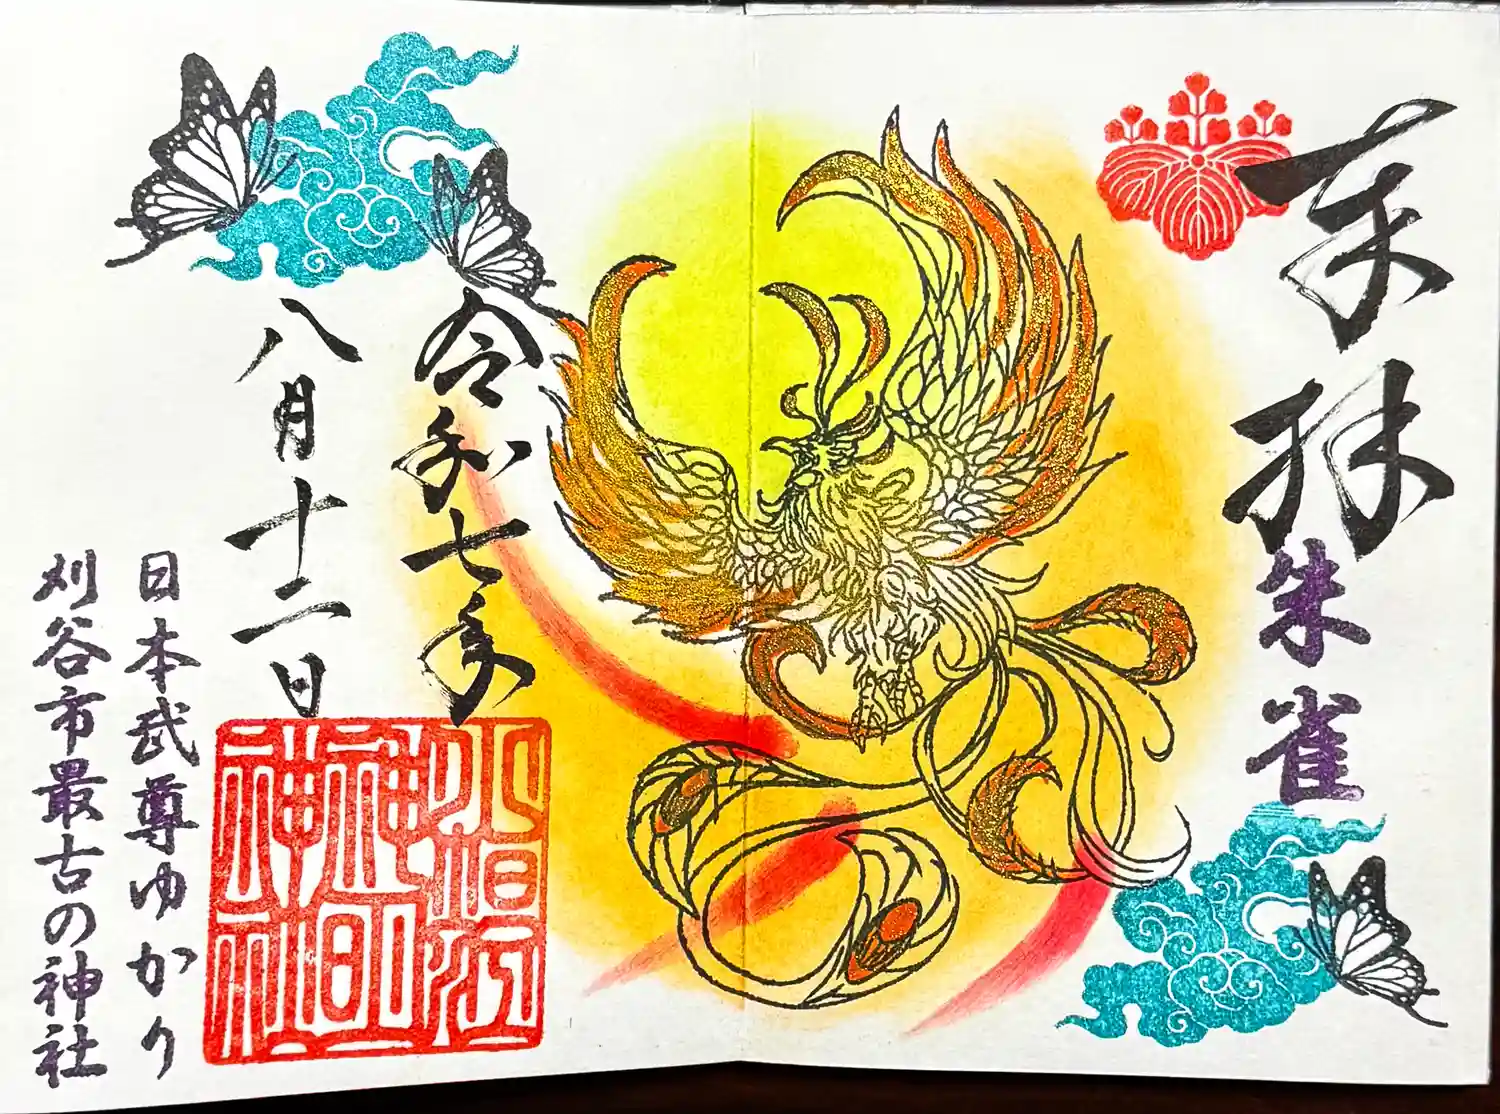 奉拝
朱雀
令和七年
八月十二日
日本武尊ゆかり
刈谷市最古の神社